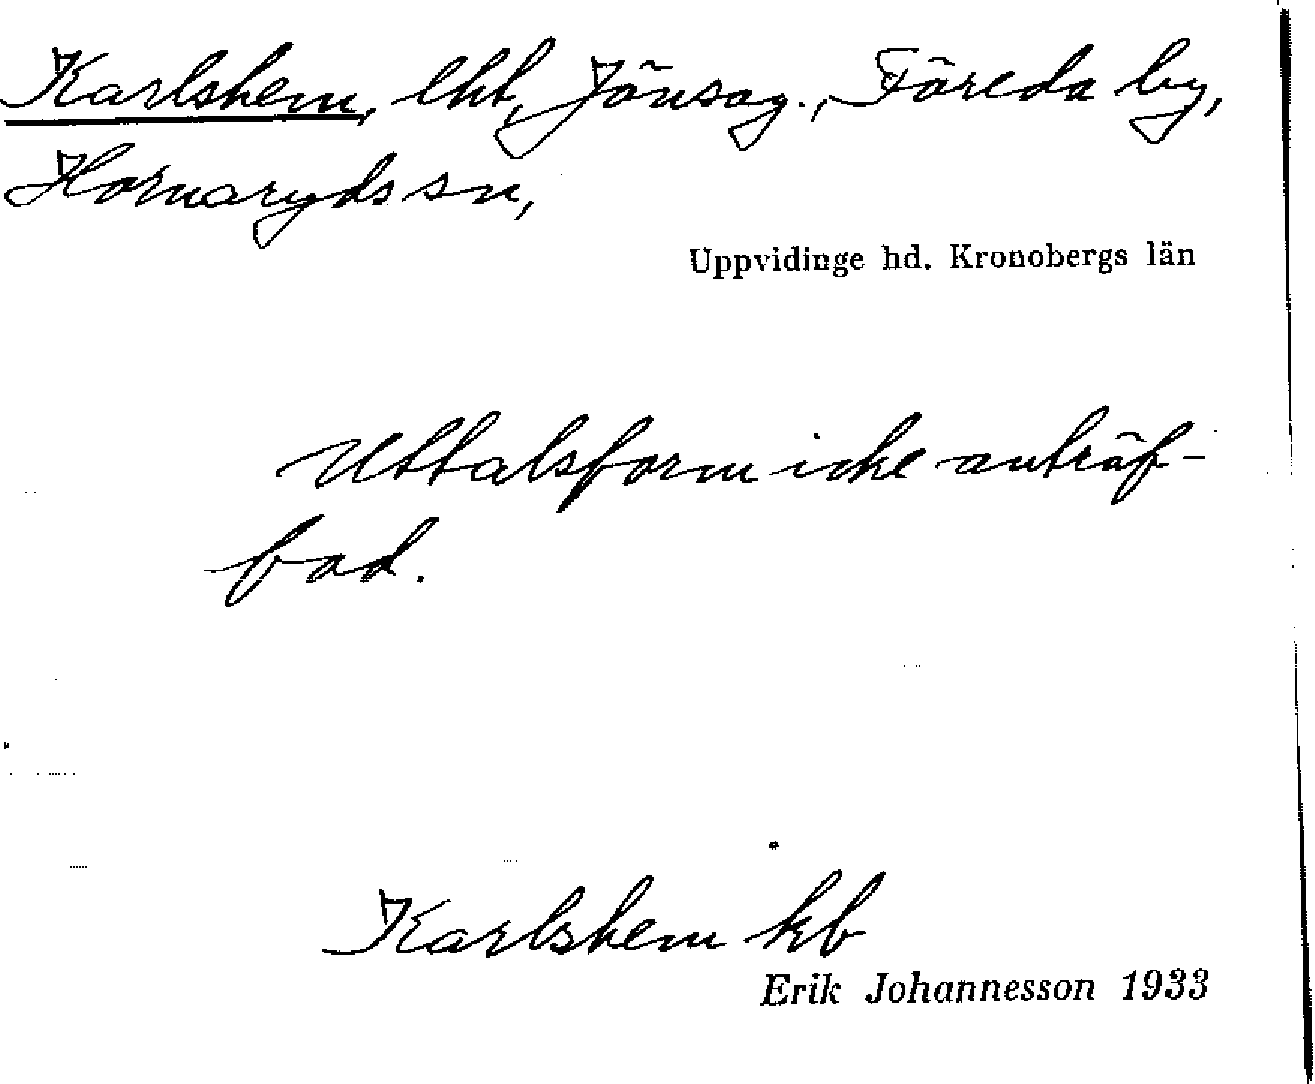 Karlshem, lht, Jönsag., Föreda by,
Hornaryds sn,
Uppvidinge hd. Kronobergs län
Uttalsform icke anträf-
fad.
Karlshem kb
Erik Johannesson 1933